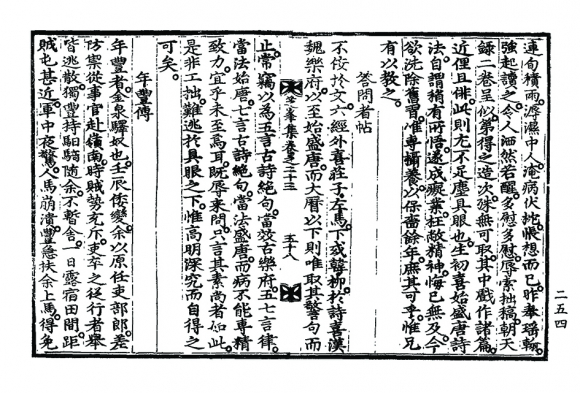 連旬積雨潯濕中人淹病伏枕悵想而已昨奉瑤翰
強起讀之令人洒然若醒多慰多慰辱索拙稿朝天
錄二卷呈似第得之造次殊無可取其中戲作諸篇
近俚且俳此則尤不足塵具眼也生初喜始盛唐詩
法自謂稍有所悟遂成癡業枉敝精神悔已無及今
欲洗除舊習惟專攝養以保喘餘年庶其可乎惟兄
有以教之
答問者帖
不佞於文六經外喜莊子左馬下或韓柳於詩喜漢
魏樂府以至始盛唐而大曆以下則唯取其警句而
集卷之二十三
五十八
止常竊以爲五言古詩絕句當效古樂府五七言律
當法始唐七言古詩絕句當法盛唐而病不能專精
致力宜乎未至爲耳既辱來問只言其素尚者如此
是非工拙難逃於具眼之下惟高明深究而自得之
可矣
年豐傳
年豐者金泉驛奴也壬辰倭變余以原任吏部郎差
防禦從事官赴嶺南時賊勢充斥吏卒之從行者舉
皆逃散獨豐持馹騎隨余不暫舍一日露宿田間距
賊屯甚近軍中夜驚人馬崩潰豐急扶余上馬得免
二五四